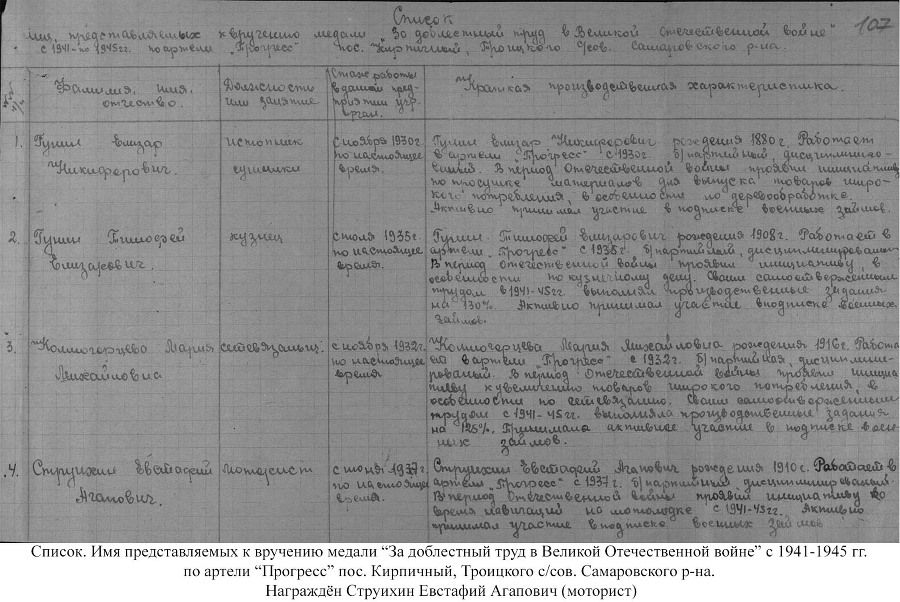 Список
лиц, представляемых к вручению медали „За доблестный труд в Великой отечественной войне"
с 1941-по 1945гг. по артели „Прогресс" пос. Кирпичный, Троицкого с/сов. Самаровского р-на.
107
Фамилия, имя, отчество.
Должность или занятие
Стаж работы в данной пред-приятии учр. орган.
Краткая производственная характеристика.
1.
Гунин Елизар
Никиферович.
истопник
сушилки
с ноября 1930г.
по настоящее
время.
Гунин Елизар Никиферович рождения 1880г. Работает
в артели „Прогресс" с 1930г. б/партийный, дисциплиниро-
ванный. В период Отечественной войны проявил инициативу
по просушке материалов для выпуска товаров широ-
кого потребления, в особенности по деревообработке.
Активно принимал участие в подписке военных займов.
2.
Гунин Тимофей
Елизарович.
кузнец
с июля 1935г.
по настоящее
время.
Гунин Тимофей Елизарович рождения 1908г. Работает в
артели „Прогресс" с 1935г. б/партийный, дисциплинирован
В период Отечественной войны проявил инициативу, в
особенности по кузнечному делу. Своим самоотверженным
трудом в 1941-45гг. выполнял производственные задания
на 130%. Активно принимал участие в подписке военных
займов.
3.
Колмогорцева Мария
Михайловна
сетевязальщ.
с ноября 1932г.
по настоящее
время
Колмогорцева Мария Михайловна рождения 1916г. Работа
ет в артели „Прогресс" с 1932г. б/партийная, дисциплини-
рованый. В период Отечественной войны проявил инициа
тиву к увеличению товаров широкого потребления, в
особенности по сетевязанию. Своим самоотверженным
трудом с 1941-45г. выполняла производственные задания
на 125%. Принимала активное участие в подписке воен
ных займов.
4.
Струихин Евстафий
Агапович.
моторист
с июня 1937г.
по настоящее
время.
Струихин Евстафий Агапович рождения 1910г. Работает в
артели „Прогресс" с 1937г. б/партийный дисциплинированый.
В период Отечественной войны проявил инициативу во
время навигации на мотолодке с 1941-45гг. Активно
принимал участие в подписке военных займов
Список. Имя представляемых к вручению медали “За доблестный труд в Великой Отечественной войне” с 1941-1945 гг.
по артели “Прогресс” пос. Кирпичный, Троицкого с/сов. Самаровского р-на.
Награждён Струихин Евстафий Агапович (моторист)